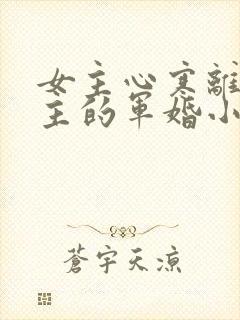 女主心寒離
主的軍婚小
蒼宇天涼